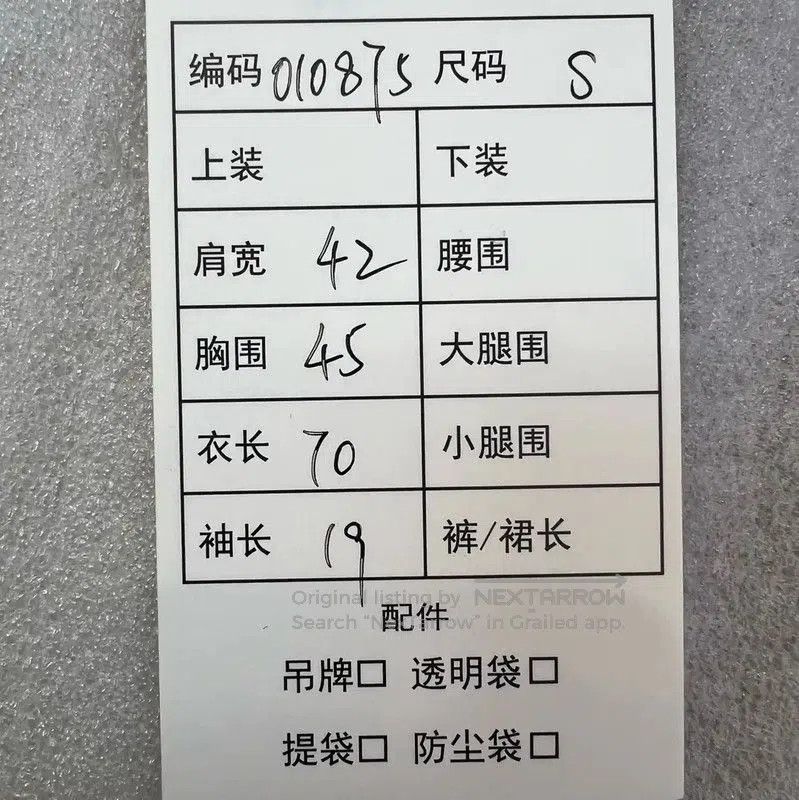 编码 010875 尺码 S
上装 下装
肩宽 42 腰围
胸围 45 大腿围
衣长 70 小腿围
袖长 19 裤/裙长
Original listing by NEXTARROW
配件
Search "NextArrow" in Grailed app.
吊牌□ 透明袋□
提袋□ 防尘袋□